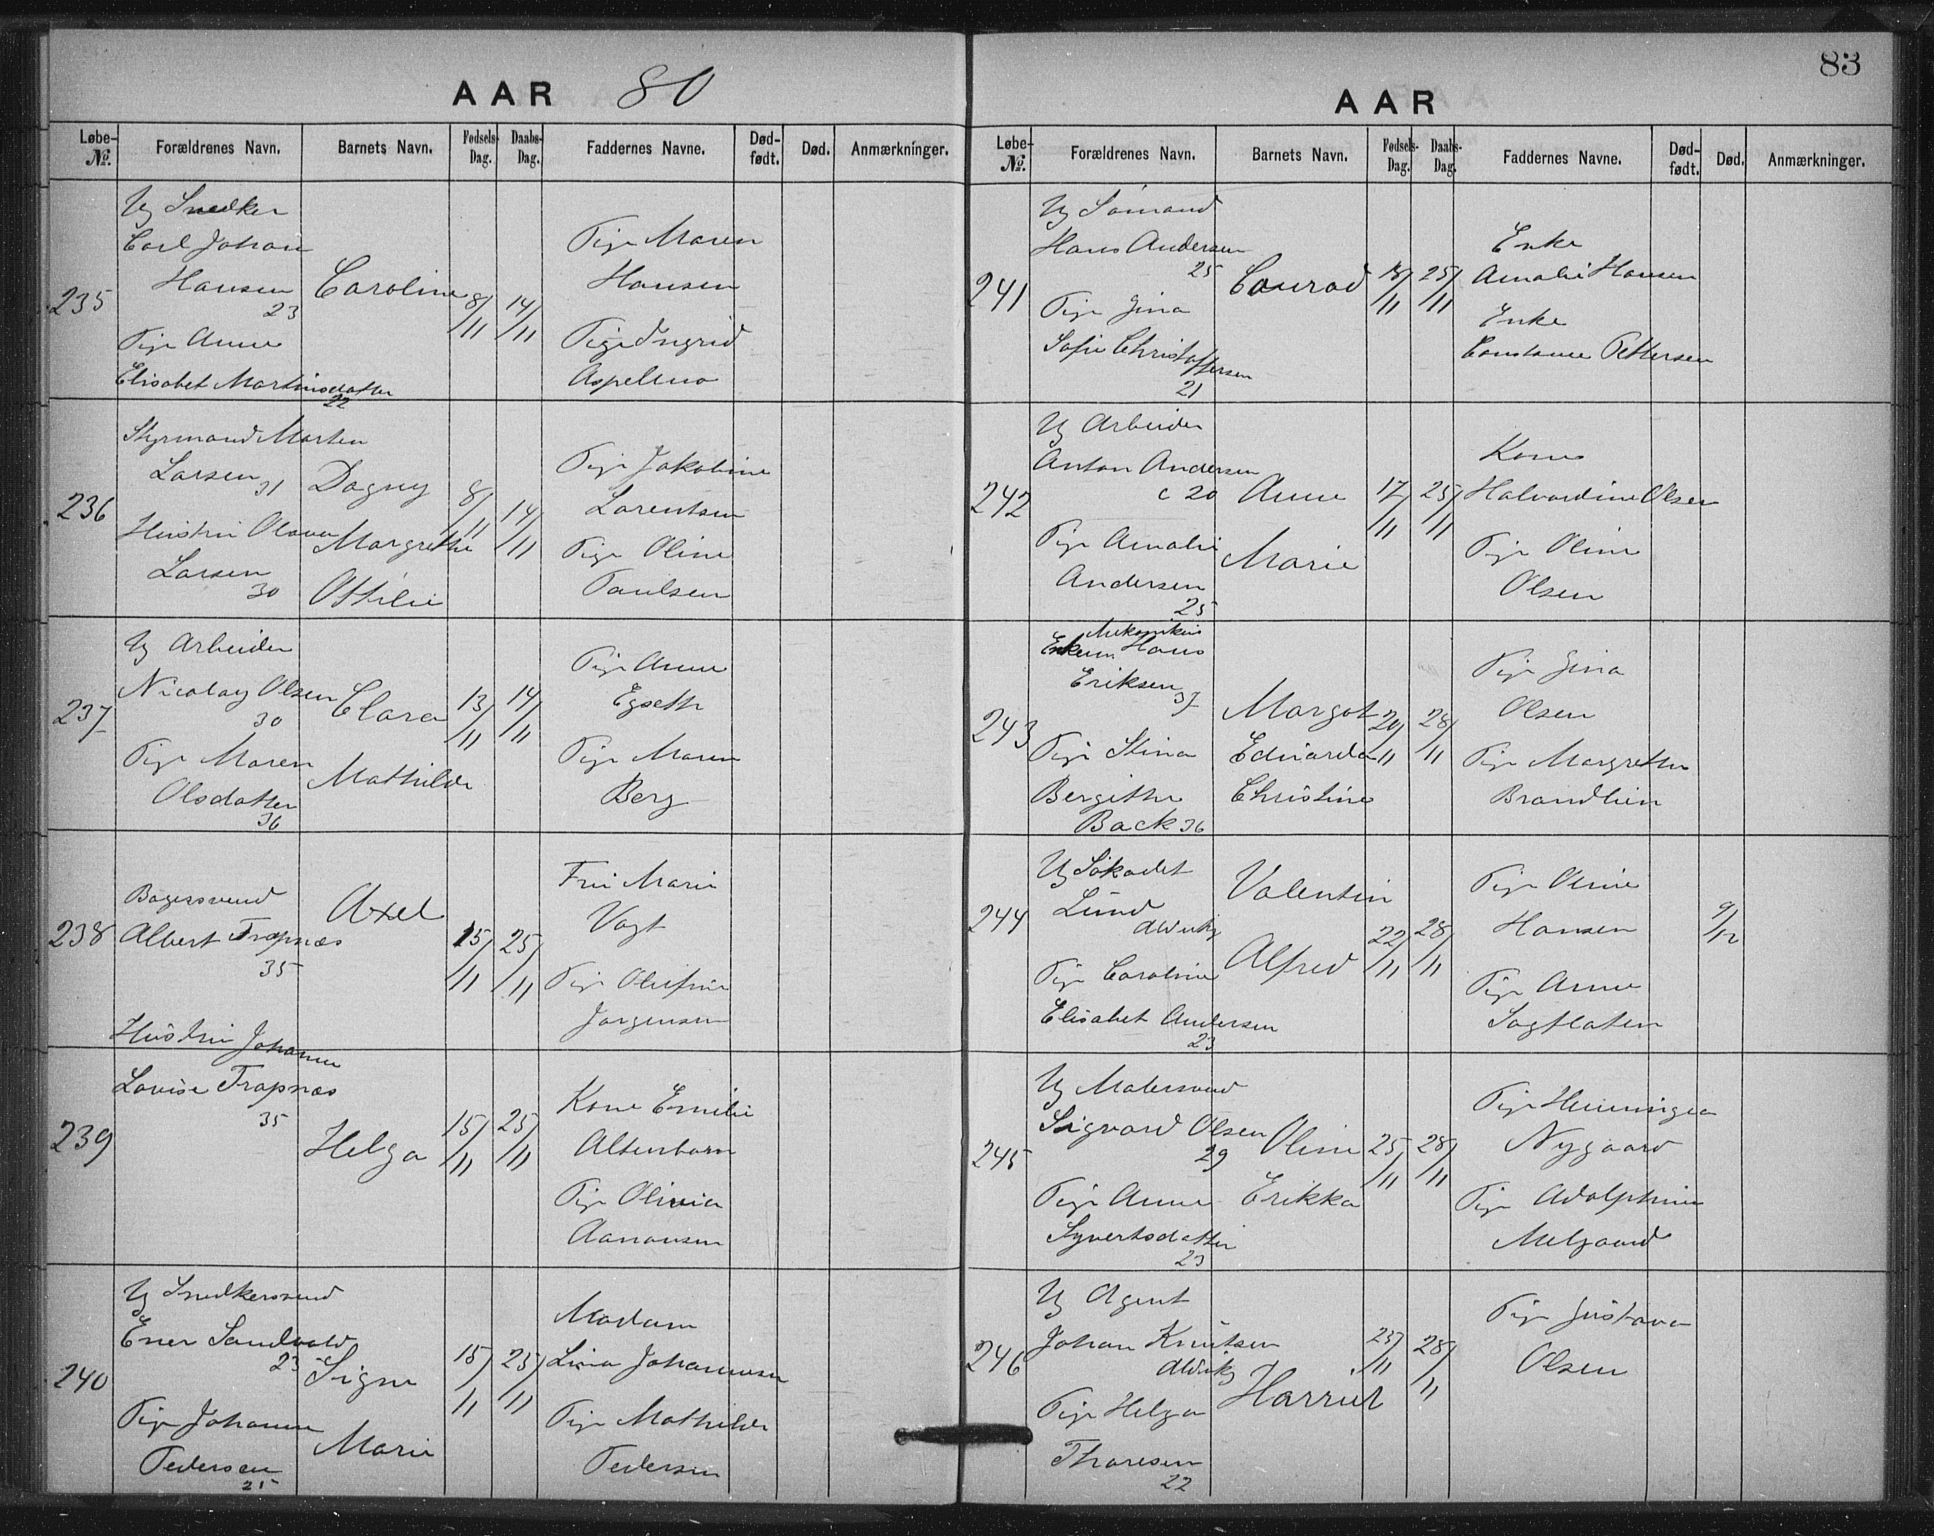 83
AAR 80
Løbe-No. Forældrenes Navn. Barnets Navn. Fødsels-Dag. Daabs-Dag. Faddernes Navne. Død-født. Død. Anmærkninger.
235
Ug Snedker
Carl Johan
Hansen
23
Pige Anne
Elisabet Martinsdatter
22
Caroline
8/11 14/11
Pige Maren
Hansen
Pige Ingrid
236
Styrmand Morten
Larsen 31
Hustru Olava
Larsen
30
Dagny
Margrethe
Othilie
8/11 14/11
Pige Jakobine
Lorentsen
Pige Oline
Paulsen
237
Ug Arbeider
Nicolay Olsen
30
Pige Maren
Olsdatter
36
Clara
Mathilde
13/11 14/11
Pige Anne
Egseth
Pige Maren
Berg
238
Bagersvend
Albert Trapnæs
35
Hustru Johanne
Lovise Trapnæs
35
Axel
15/11 25/11
Fru Marie
Vogt
Pige Olufine
Jorgensen
239
Helga
15/11 25/11
Kone Emilie
Altenborn
Pige Olivia
Aanonsen
240
Ug Snedkersvend
Ener Sandvold
23
Pige Johanne
Pedersen
25
Signe
Marie
15/11 25/11
Madam
Lina Johannesen
Pige Mathilde
Pedersen
AAR
Løbe-No. Forældrenes Navn. Barnets Navn. Fødsels-Dag. Daabs-Dag. Faddernes Navne. Død-født. Død. Anmærkninger.
241
Ug Sømand
Hans Andersen
25
Pige Gina
Sofie Christoffersen
21
Conrad
18/11 25/11
Enke
Amalie Hansen
Enke
Constance Pettersen
242
Ug Arbeider
Anton Andersen
c 20
Pige Amalie
Andersen
25
Anne
Marie
17/11 25/11
Kone
Halvardine Olsen
Pige Oline
Olsen
243
Mekanikus
Enkem Hans
Eriksen
37
Pige Stina
Bergitte
Back 36
Margot
Edvarda
Christine
20/11 28/11
Pige Gina
Olsen
Pige Margrethe
Brandlien
244
Ug Søkadet
Lund
Pige Caroline
Elisabet Andersen
23
Valentin
Alfred
22/11 28/11
Pige Oline
Hansen
Pige Anne
Sagflaten
9/12
245
Ug Malersvend
Sigvard Olsen
29
Pige Anne
Syvertsdatter
23
Oline
Erikka
25/11 28/11
Pige Henningea
Nygaard
Pige Adolphine
Melgaard
246
Ug Agent
Johan Knutsen
Pige Helga
Thoresen
22
Harriet
23/11 28/11
Pige Gustava
Olsen